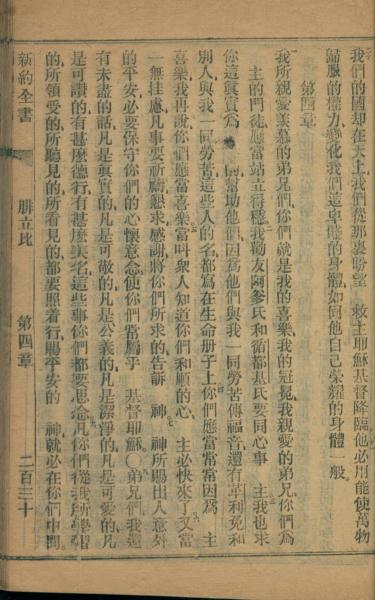 我們的國却在天上我們從那裏盼望 救主耶穌基督降臨他必用能使萬物
歸服的權力變化我們這卑賤的身體如同他自己榮耀的身體一般
第四章
我所親愛羨慕的弟兄們你們就是我的喜樂我的冠冕我親愛的弟兄你們為
主的門徒應當站立得穩我勸友阿爹氏和循都基氏要同心事 主我也求
你這真實為 的幫助他們因為他們與我一同勞苦傳福音還有革利免和
別人與我一同勞苦這些人的名都寫在生命册子上你們應當常常因為 主
喜樂我再說你們應當喜樂當叫衆人知道你們和順的心 主必快來了又當
一無挂慮凡事要祈禱懇求感謝將你們所求的告訴 神 神所賜出人意外
的平安必要保守你們的心懷意念使你們常屬乎 基督耶穌○弟兄們我還
有未盡的話凡是真實的凡是可敬的凡是公義的凡是潔淨的凡是可愛的凡
是可讚的有甚麽德行有甚麽美名這些事你們都要思念凡你們從我所學習
的所領受的所聽見的所看見的都要照着行賜平安的 神就必在你們中間
新約全書 腓立比 第四章 二百三十